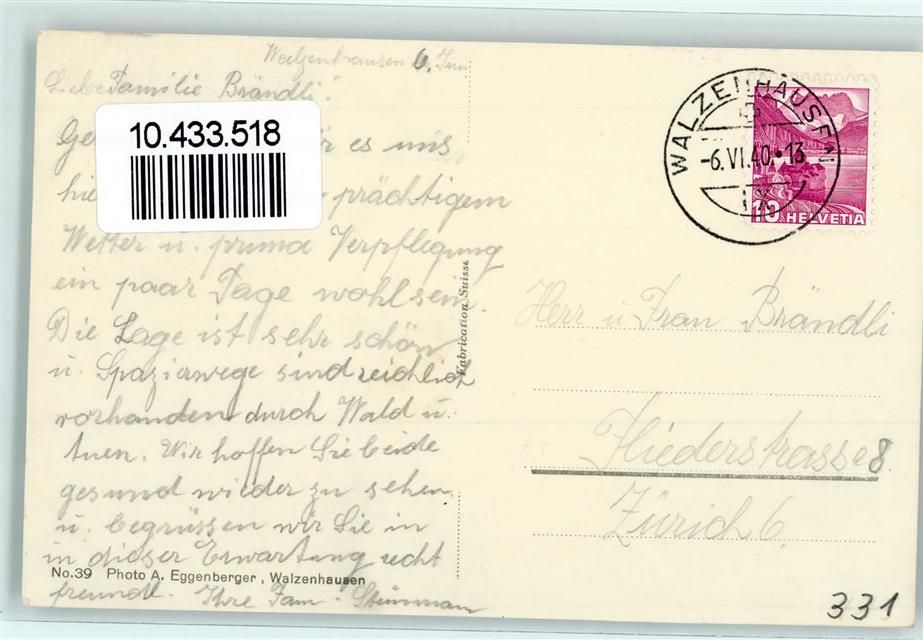 Walzenhausen 6. Juni
Liebe Familie Brändli!
10.433.518
es uns
prächtigem
Wetter u. prima Verpflegung
ein paar Tage wohl sein.
Die Lage ist sehr schön
u. Spazierwege sind reichlich
vorhanden durch Wald u.
Auen. Wir hoffen Sie beide
gesund wieder zu sehen,
u. begrüssen wir Sie in
in dieser Erwartung recht
No.39 Photo A. Eggenberger, Walzenhausen
freundl. Ihre Fam. Steinmann
Fabrication Suisse
WALZENHAUSEN
-6.VI.40.•13
10 HELVETIA
Herr u Frau Brändli
Fliederstrasse 8
Zürich 6
331